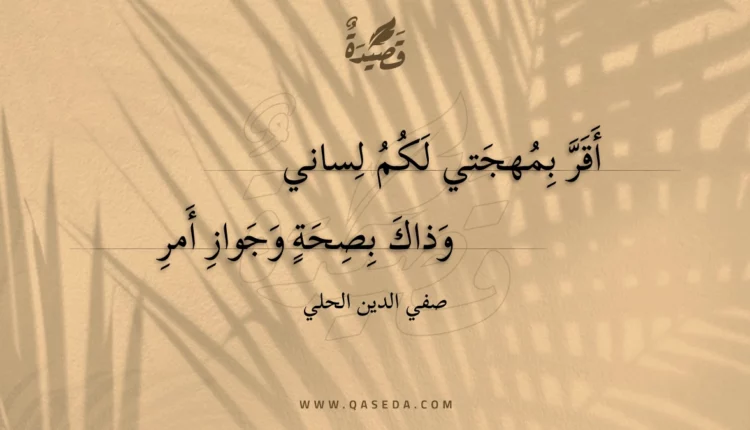 قَصِيْدَةٌ
أَقَرَّ بِمُهجَتي لَكُمُ لِساني
وَذاكَ بِصِحَةٍ وَجَوازِ أَمرِ
صفي الدين الحلي
WWW.QASEDA.COM